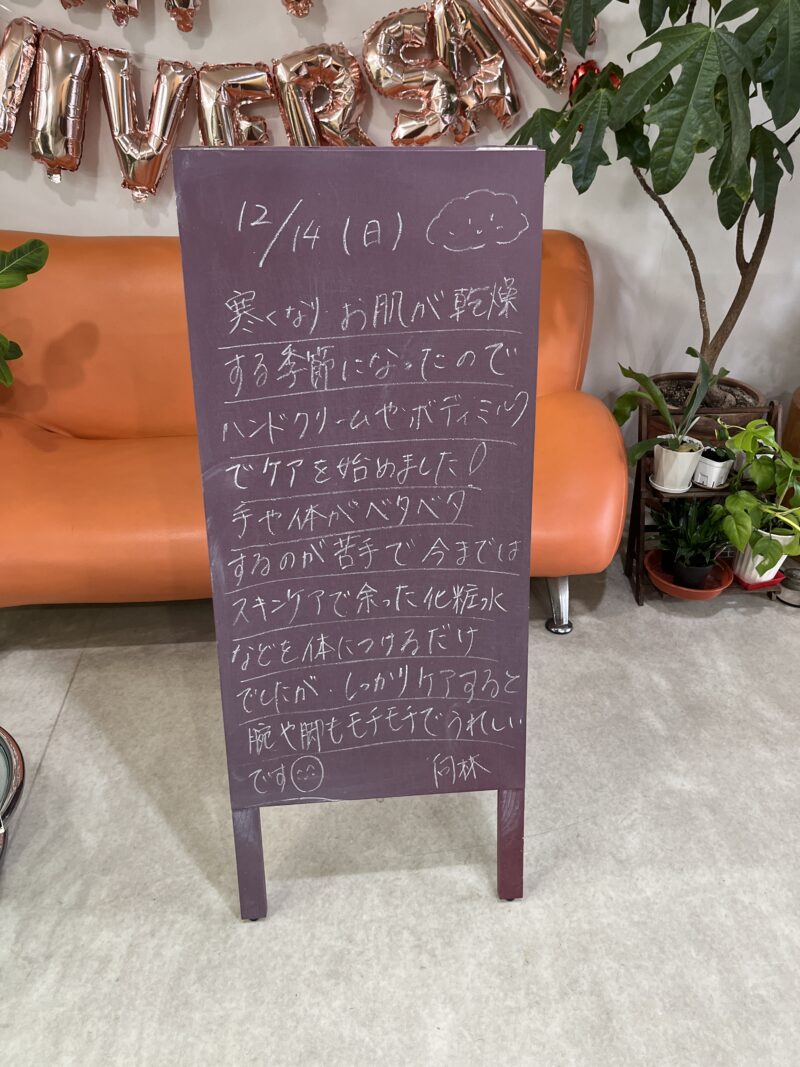 NIVERSA
12/14(日)
寒くなり お肌が乾燥
する季節になったので
ハンドクリームやボディミルク
でケアを始めました!
手や体がベタベタ
するのが苦手で今までは
スキンケアで余った化粧水
などを体につけるだけ
でしたが、しっかりケアすると
腕や脚もモチモチでうれしい
です 向林